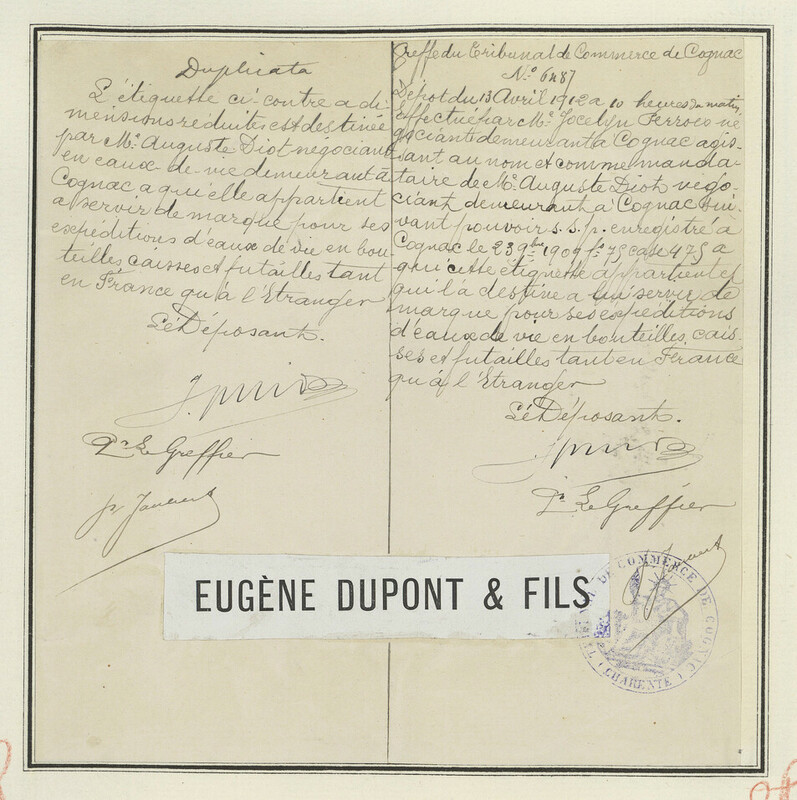 Duplicata
L'étiquette ci-contre a di-
mensions réduites est destinée
par Mr. Auguste Diot négociant
en eaux-de-vie demeurant à
Cognac a qui elle appartient
a servir de marque pour ses
expéditions d'eaux de vie en bou-
teilles caisses et futailles tant
en France qu'à l'Etranger
Le Déposant.
Pr Le Greffier
Greffe du Tribunal de Commerce de Cognac
No. 6487
Dépot du 13 Avril 1912 a 10 heures du matin,
Effectué par Mr. Jocelyn Ferroco né-
gociant demeurant a Cognac agis-
sant au nom et comme manda-
taire de Mr. Auguste Diot négo-
ciant demeurant à Cognac sui-
vant pouvoir s.s.p. enregistré à
Cognac le 23 9bre 1909 fo 75 case 475 a
qui cette étiquette appartient et
qu'il a destine a lui servir de
marque pour ses expéditions
d'eaux de vie en bouteilles, cais-
ses et futailles tant en France
qu'à l'Etranger
Le Déposant.
Pr Le Greffier
EUGÈNE DUPONT & FILS
TRIBUNAL DE COMMERCE DE COGNAC
(CHARENTE)